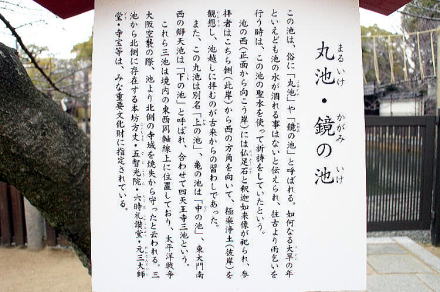 まるいけ　かがみ　いけ
丸池・鏡の池
この池は、俗に「丸池」や「鏡の池」と呼ばれる。如何なる大旱の年
といえども池の水が涸れる事はないと伝えられ、往古より雨乞いを
行う時は、この池の聖水を使って祈祷をしていたという。
池の西（正面から向こう岸）には仏足石と釈迦如来像が祀られ、参
拝者はこちら側（此岸）から西の方角を向いて、極楽浄土（彼岸）を
観想し、池越しに拝むのが古来からの習わしであった。
また、この丸池は別名「上の池」、亀の池は「中の池」、東大門南
西の辯天池は「下の池」と呼ばれ、合わせて四天王寺三池という。
これら三池は境内の東西同軸線上に位置しており、太平洋戦争
大阪空襲の際、池より北側の寺域を焼失から守ったと云われる。三
池から北側に存在する本坊方丈・五智光院・六時礼讃堂・元三大師
堂・寺宝等は、みな重要文化財に指定されている。